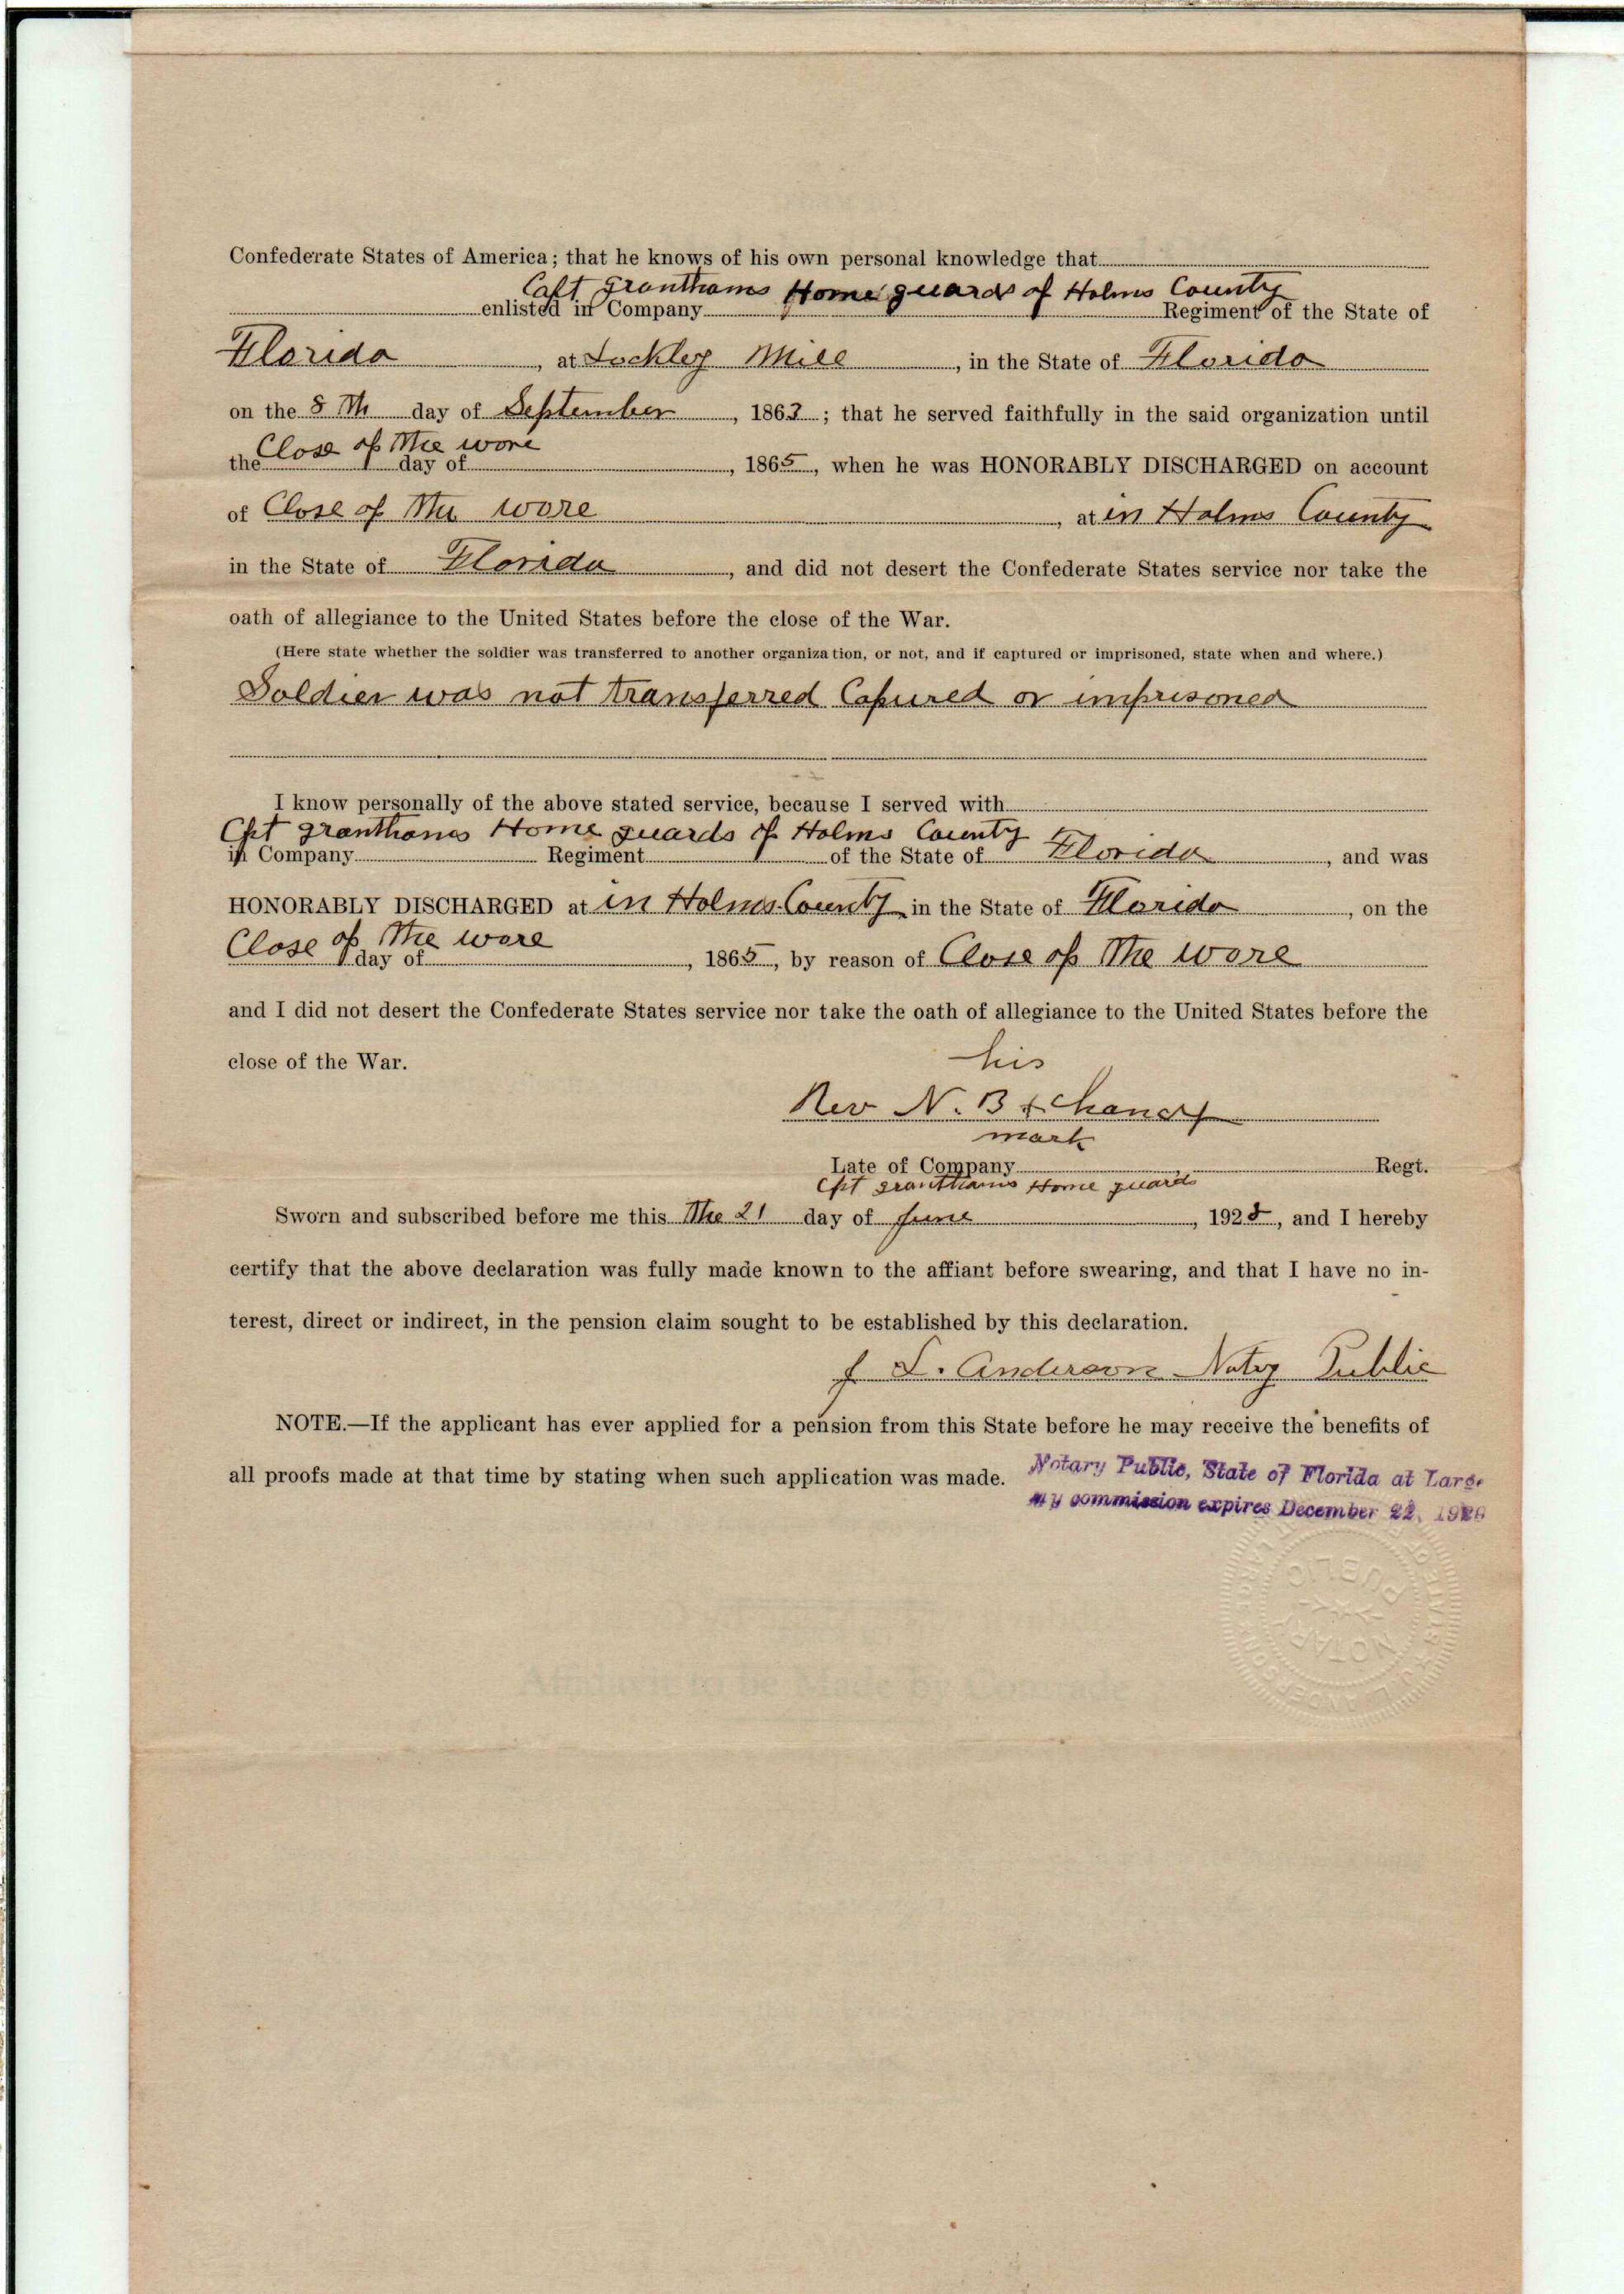 Confederate States of America; that he knows of his own personal knowledge that
Capt Granthams Home guards of Holms County
enlisted in Company Regiment of the State of
Florida, at Lockley Mill, in the State of Florida
on the 8 Th day of September, 1863; that he served faithfully in the said organization until
Close of the wore
the day of, 1865, when he was HONORABLY DISCHARGED on account
of Close of the wore, at in Holms County
in the State of Florida, and did not desert the Confederate States service nor take the
oath of allegiance to the United States before the close of the War.
(Here state whether the soldier was transferred to another organization, or not, and if captured or imprisoned, state when and where.)
Soldier was not transferred Capured or imprisoned
I know personally of the above stated service, because I served with
Cpt granthams Home guards of Holms County
in Company Regiment of the State of Florida, and was
HONORABLY DISCHARGED at in Holms County in the State of Florida, on the
Close of The wore
day of, 1865, by reason of Close of The wore
and I did not desert the Confederate States service nor take the oath of allegiance to the United States before the
close of the War.
his
Rev N. B + Chancy
mark
Late of Company Regt.
Cpt granthams Home guards
Sworn and subscribed before me this The 21 day of June, 1928, and I hereby
certify that the above declaration was fully made known to the affiant before swearing, and that I have no in-
terest, direct or indirect, in the pension claim sought to be established by this declaration.
J L. Anderson Notry Public
NOTE.—If the applicant has ever applied for a pension from this State before he may receive the benefits of
all proofs made at that time by stating when such application was made.
Notary Public, State of Florida at Large
My commission expires December 22, 19
J. L. ANDERSON
STATE OF
LARGE
NOTARY
PUBLIC
Affidavit to be Made by Comrade